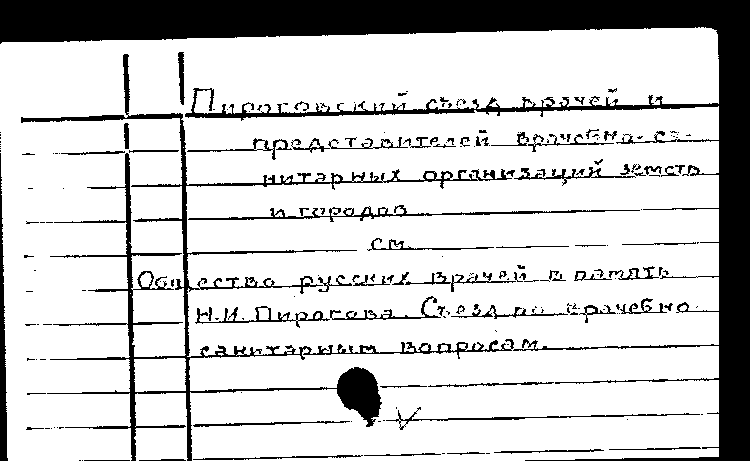 Пироговский съезд врачей и
представителей врачебно-са-
нитарных организаций земств
и городов
см.
Общество русских врачей в память
Н.И. Пирогова. Съезд по врачебно-
санитарным вопросам.